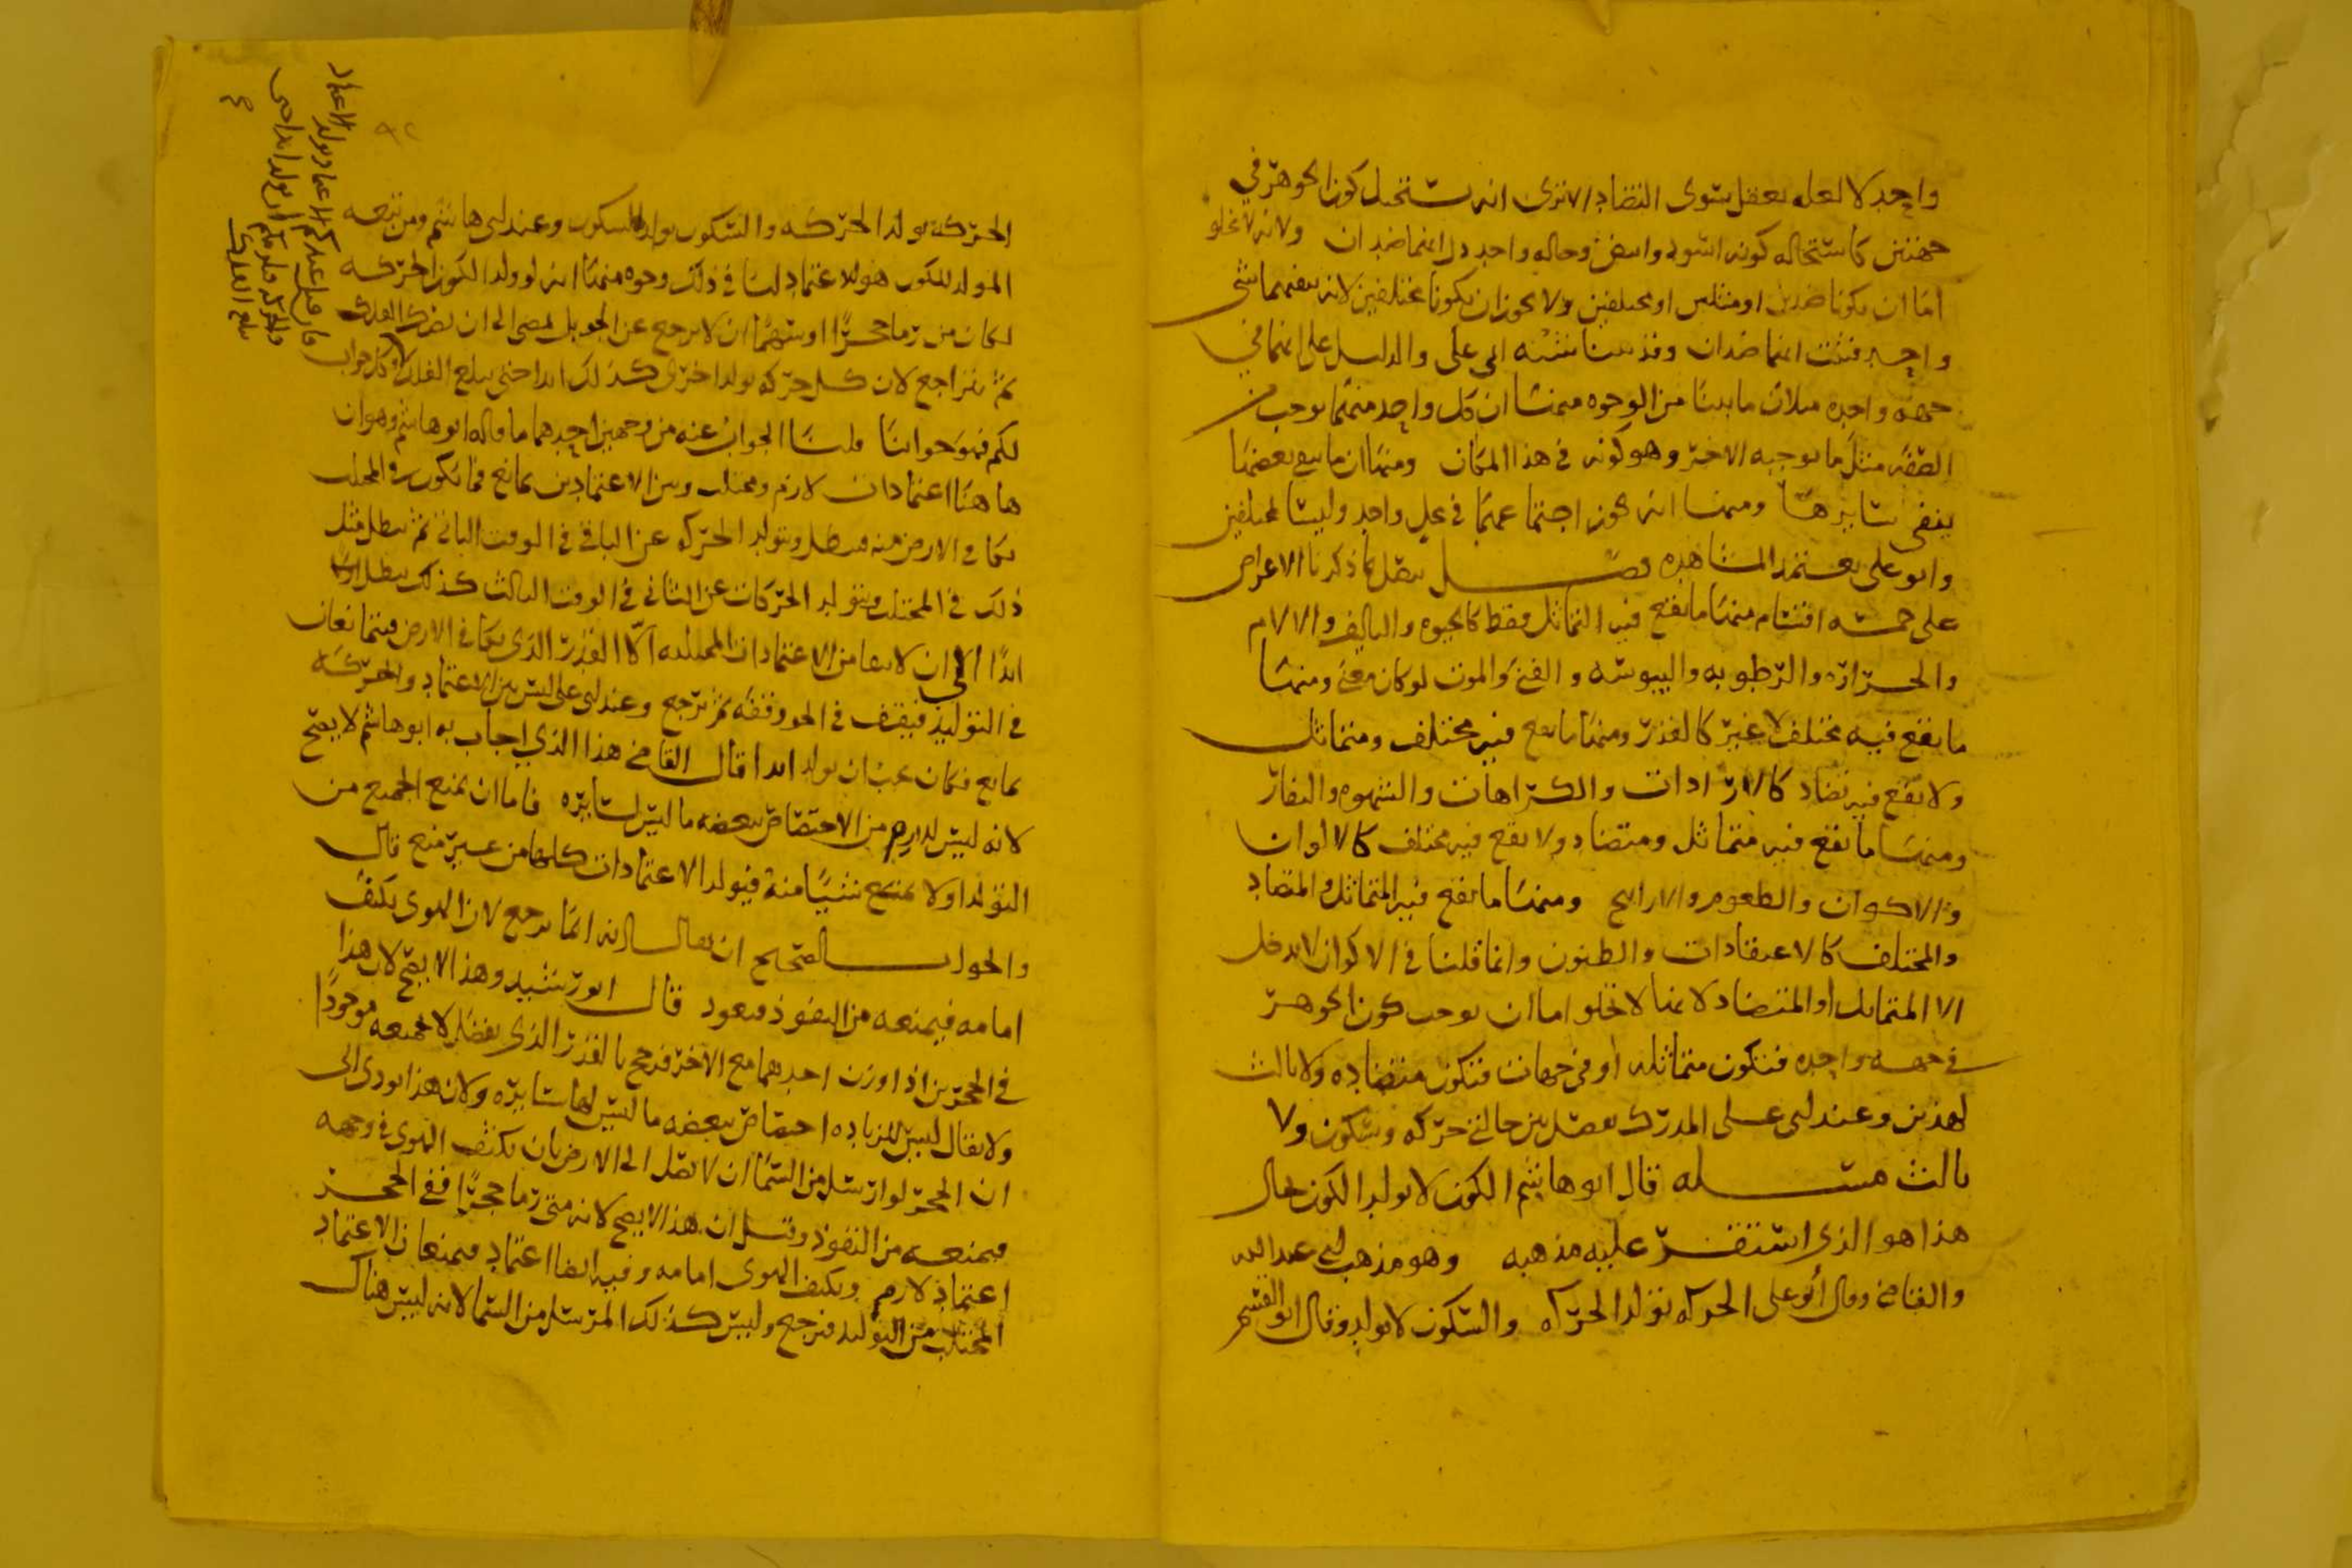 واحد لا لعله تعقل سوى التضاد الا ترى انه يستحيل كون الجوهر في
جهتين كاستحاله كونه اسود وابيض وحاله واحد دل انهما ضدان ولانه لا يخلو
اما ان يكونا ضدين او مثلين او مختلفين ولا يجوز ان يكونا مختلفين لانه ينفيهما شي
واحد فثبت انهما ضدان وقد بينا نسبته الى ابي علي والدليل على انهما في
جهه واحده مثلان ما بينا من الوجوه منها ان كل واحد منهما يوجب من
الصفه مثل ما يوجبه الاخر وهو كونه في هذا المكان ومنها ان ما ينفي بعضها
ينفي سايرها ومنها انه يجوز اجتماعهما في محل واحد وليسا مختلفين
وابو علي يعتمد المشاهده فصل يتصل بما ذكرنا الاعراض
على خمسه اقسام منها ما يقع فيه التماثل فقط كالحيوه والتاليف والالام
والحراره والرطوبه واليبوسه والفنى والموت لو كان معنى ومنها
ما يقع فيه مختلف لا غير كالقدر ومنها ما يقع فيه مختلف ومتماثل
ولا يقع فيه تضاد كالارادات والكراهات والشهوه والنفار
ومنها ما يقع فيه متماثل ومتضاد ولا يقع فيه مختلف كالالوان
والاكوان والطعوم والارايح ومنها ما يقع فيه المتماثل والمتضاد
والمختلف كالاعتقادات والظنون وانما قلنا في الاكوان لا يدخل
الا المتماثل او المتضاد لانها لا تخلو اما ان يوجب كون الجوهر
في جهه واحده فتكون متماثله او في جهات فتكون متضاده ولا ثالث
لهذين وعند ابي علي المدرك يفصل بين حالتي حركه وسكون ولا
ثالث مسله قال ابو هاشم الكون لا يولد الكون بحال
هذا هو الذي استقر عليه مذهبه وهو مذهب ابي عبد الله
والقاضي وقال ابو علي الحركه تولد الحركه والسكون لا يولد وقال ابو القسم
الحركه تولد الحركه والسكون يولد السكون وعند ابي هاشم ومن تبعه
المولد للكون هو الاعتماد لنا في ذلك وجوه منها انه لو ولد الكون الحركه
لكان من رما حجرا او سهما ان لا يرجع عن الجو بل يمضي الى ان يضرك الفلك
ثم يتراجع لان كل حركه تولد اخرى كذلك ابدا حتى يبلغ الفلك وكل جواب
لكم فهو جوابنا قلنا الجواب عنه من وجهين احدهما ما قاله ابو هاشم وهو ان
هاهنا اعتمادات لازم ومجتلب وبين الاعتمادين تمانع فما يكون في المجتلب
يكافي الارض منه فيبطل ويتولد الحركه عن الباقي في الوقت الثاني ثم يبطل مثل
ذلك في المجتلب ويتولد الحركات عن الثاني في الوقت الثالث كذلك يبطل
ابدا الى ان لا يبقا من الاعتمادات المجتلبه الا القدر الذي يكافي الارض فيتمانعان
في التوليد فيقف في الجو وقفه ثم يرجع وعند ابي علي ليس بين الاعتماد والحركه
تمانع فكان يجب ان يولد ابدا قال القاضي هذا الذي اجاب به ابو هاشم لا يصح
لانه ليس لللازم من الاختصاص ببعضه ما ليس لسايره فاما ان يمنع الجميع من
التولد او لا يمنع شيا منه فيولد الاعتمادات كلها من غير منع قال
والجواب الصحيح ان يقال انه انما يرجع لان الهوى يكثف
امامه فيمنعه من النفوذ فيعود قال ابو رشيد وهذا لا يصح لان هذا موجودا
في الحجرين اذا وزن احدهما مع الاخر فرجح بالقدر الذي يفضل لا بجميعه
ولا يقال ليس للزياده اختصاص ببعضه ما ليس لها سايره ولان هذا يودي الى
ان الحجر لو ارسل من السما ان لا يصل الى الارض بان يكثف الهوى في وجهه
فيمنعه من النفوذ وقيل ان هذا لا يصح لانه متى رما حجرا ففي الحجر
اعتماد لازم ويكثف الهوى امامه وفيه ايضا اعتماد فيمنعان الاعتماد
المجتلب من التوليد فيرجع وليس كذلك المرسل من السما لانه ليس هناك
فان قيل عندكم الاعتماد يولد الاعتماد
والحركه فلم قلتم ان يولد ابدا حتى
يبلغ الفلك